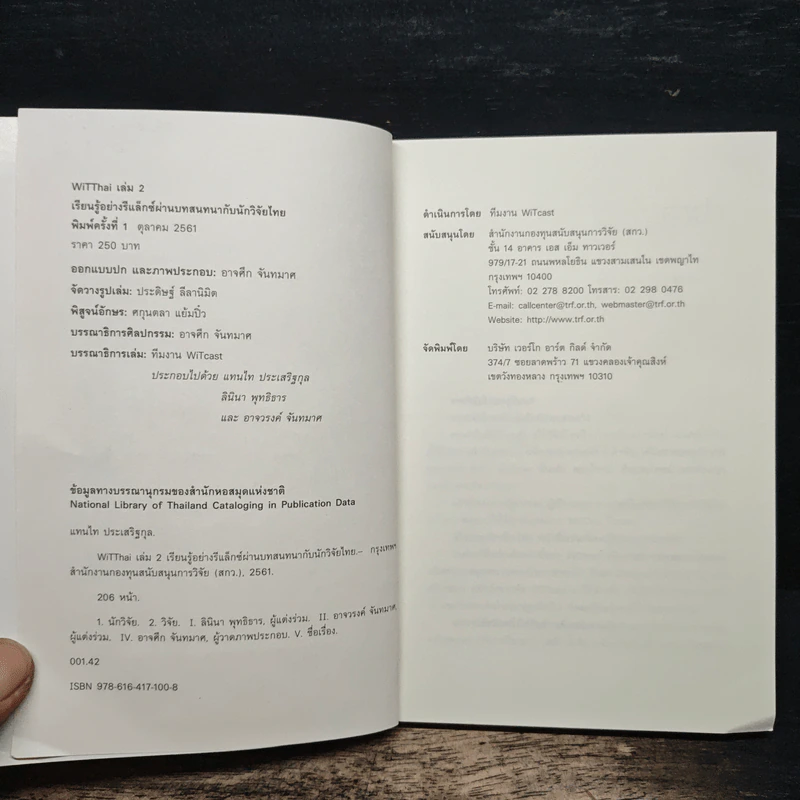 WiTThai เล่ม 2
เรียนรู้อย่างรีแล็กซ์ผ่านบทสนทนากับนักวิจัยไทย
พิมพ์ครั้งที่ 1 ตุลาคม 2561
ราคา 250 บาท
ออกแบบปก และภาพประกอบ: อาจศึก จันทมาศ
จัดวางรูปเล่ม: ประดิษฐ์ ลีลานิมิต
พิสูจน์อักษร: ศกุนตลา แย้มปิ๋ว
บรรณาธิการศิลปกรรม: อาจศึก จันทมาศ
บรรณาธิการเล่ม: ทีมงาน WiTcast
ประกอบไปด้วย แทนไท ประเสริฐกุล
ลินินา พุทธิธาร
และ อาจวรงค์ จันทมาศ
ข้อมูลทางบรรณานุกรมของสำนักหอสมุดแห่งชาติ
National Library of Thailand Cataloging in Publication Data
แทนไท ประเสริฐกุล.
WiTThai เล่ม 2 เรียนรู้อย่างรีแล็กซ์ผ่านบทสนทนากับนักวิจัยไทย.– กรุงเทพฯ
สำนักงานกองทุนสนับสนุนการวิจัย (สกว.), 2561.
206 หน้า.
1. นักวิจัย. 2. วิจัย. I. ลินินา พุทธิธาร, ผู้แต่งร่วม. II. อาจวรงค์ จันทมาศ,
ผู้แต่งร่วม. IV. อาจศึก จันทมาศ, ผู้วาดภาพประกอบ. V. ชื่อเรื่อง.
001.42
ISBN 978-616-417-100-8
ดำเนินการโดย ทีมงาน WiTcast
สนับสนุนโดย สำนักงานกองทุนสนับสนุนการวิจัย (สกว.)
ชั้น 14 อาคาร เอส เอ็ม ทาวเวอร์
979/17-21 ถนนพหลโยธิน แขวงสามเสนใน เขตพญาไท
กรุงเทพฯ 10400
โทรศัพท์: 02 278 8200 โทรสาร: 02 298 0476
E-mail: callcenter@trf.or.th, webmaster@trf.or.th
Website: http://www.trf.or.th
จัดพิมพ์โดย บริษัท เวอร์โก อาร์ต กิลด์ จำกัด
374/7 ซอยลาดพร้าว 71 แขวงคลองเจ้าคุณสิงห์
เขตวังทองหลาง กรุงเทพฯ 10310